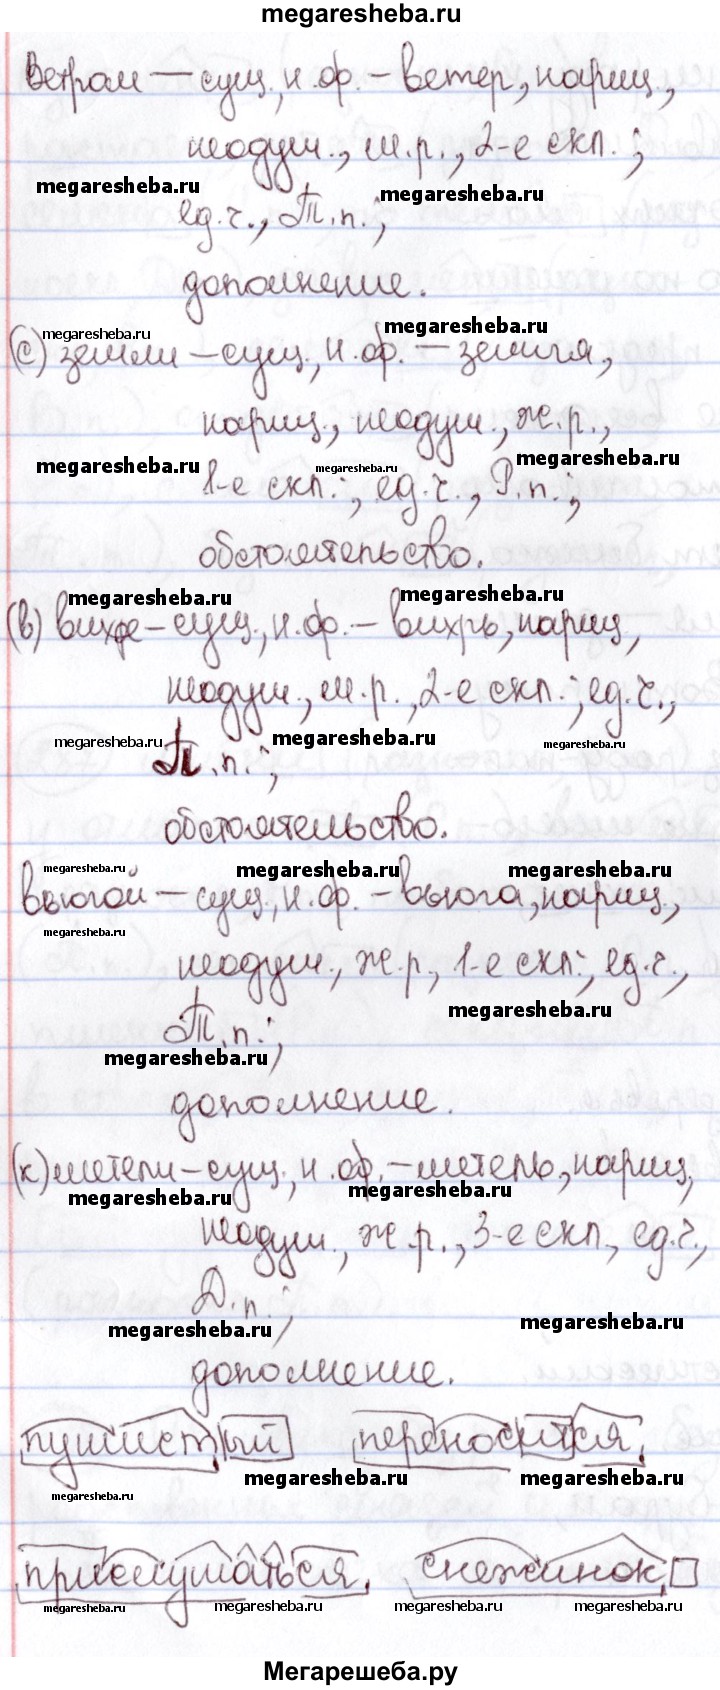 megaresheba.ru
Ветром — сущ., н.ф. – ветер, нариц.,
неодуш., м.р., 2-е скл.;
megaresheba.ru megaresheba.ru
ед.ч., Т.п.;
дополнение.
megaresheba.ru megaresheba.ru
(с) земли – сущ., н.ф. – земля,
нариц., неодуш., ж.р.,
megaresheba.ru megaresheba.ru megaresheba.ru
1-е скл.; ед.ч., Р.п.;
обстоятельство.
megaresheba.ru megaresheba.ru
(в) вихре – сущ., н.ф. – вихрь, нариц.,
неодуш., м.р., 2-е скл.; ед.ч.,
megaresheba.ru megaresheba.ru megaresheba.ru
П.п.;
обстоятельство.
megaresheba.ru megaresheba.ru megaresheba.ru
Вьюгой – сущ., н.ф. – вьюга, нариц.,
megaresheba.ru
неодуш., ж.р., 1-е скл.; ед.ч.,
megaresheba.ru
Т.п.;
megaresheba.ru
дополнение.
(к) метели – сущ., н.ф. – метель, нариц.,
megaresheba.ru megaresheba.ru
неодуш., ж.р., 3-е скл., ед.ч.,
Д.п.;
megaresheba.ru megaresheba.ru
дополнение.
пушистый, переносится,
megaresheba.ru megaresheba.ru
megaresheba.ru
прислушаться, снежинок
megaresheba.ru megaresheba.ru megaresheba.ru megaresheba.ru
Мегарешеба.ру